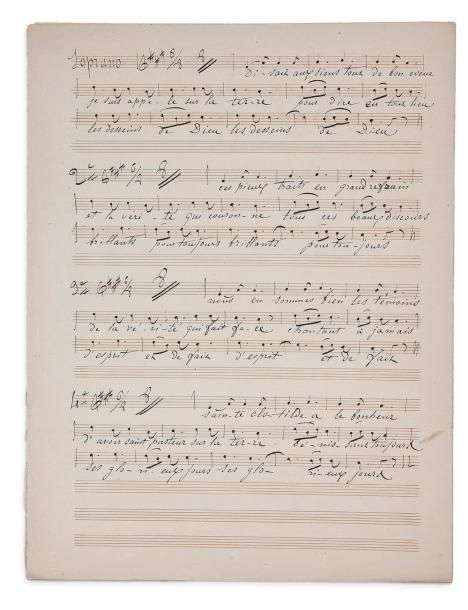 Soprano 6/2 8
Di-sait aux siens tour de bon cœur
je suis appe-le sur la ter-re pour dire en tout lieu
les desseins de Dieu les desseins de Dieu
2e 6/2 8
ces pieux traits en grand
et la veri-te que couron-ne tous ces beaux discours
brillants pour toujours brillants pour tou-jours
3e 6/2 8
nous en sommes bien les temoins
de la ve-ri-te qui fait chantant à jamais
d'esprot et de paix d'esprot et de paix
4e 6/2 8
sain-te clo-tilde a le bonheur
d'avoir saint pasteur sur la ter-re De-nis
ses glo-ri-eux jours ses glo-ri-eux jours